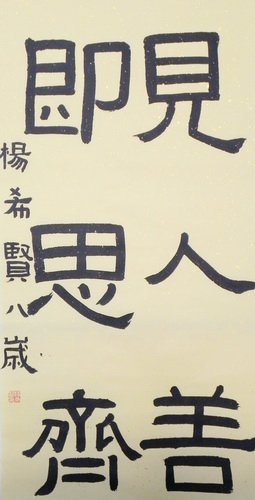 見人善
即思齊
楊希賢八歲